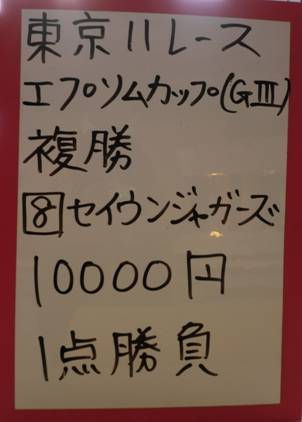 東京11レース
エプソムカップ(GⅢ)
複勝
8セイウンジャガーズ
10000円
1点勝負